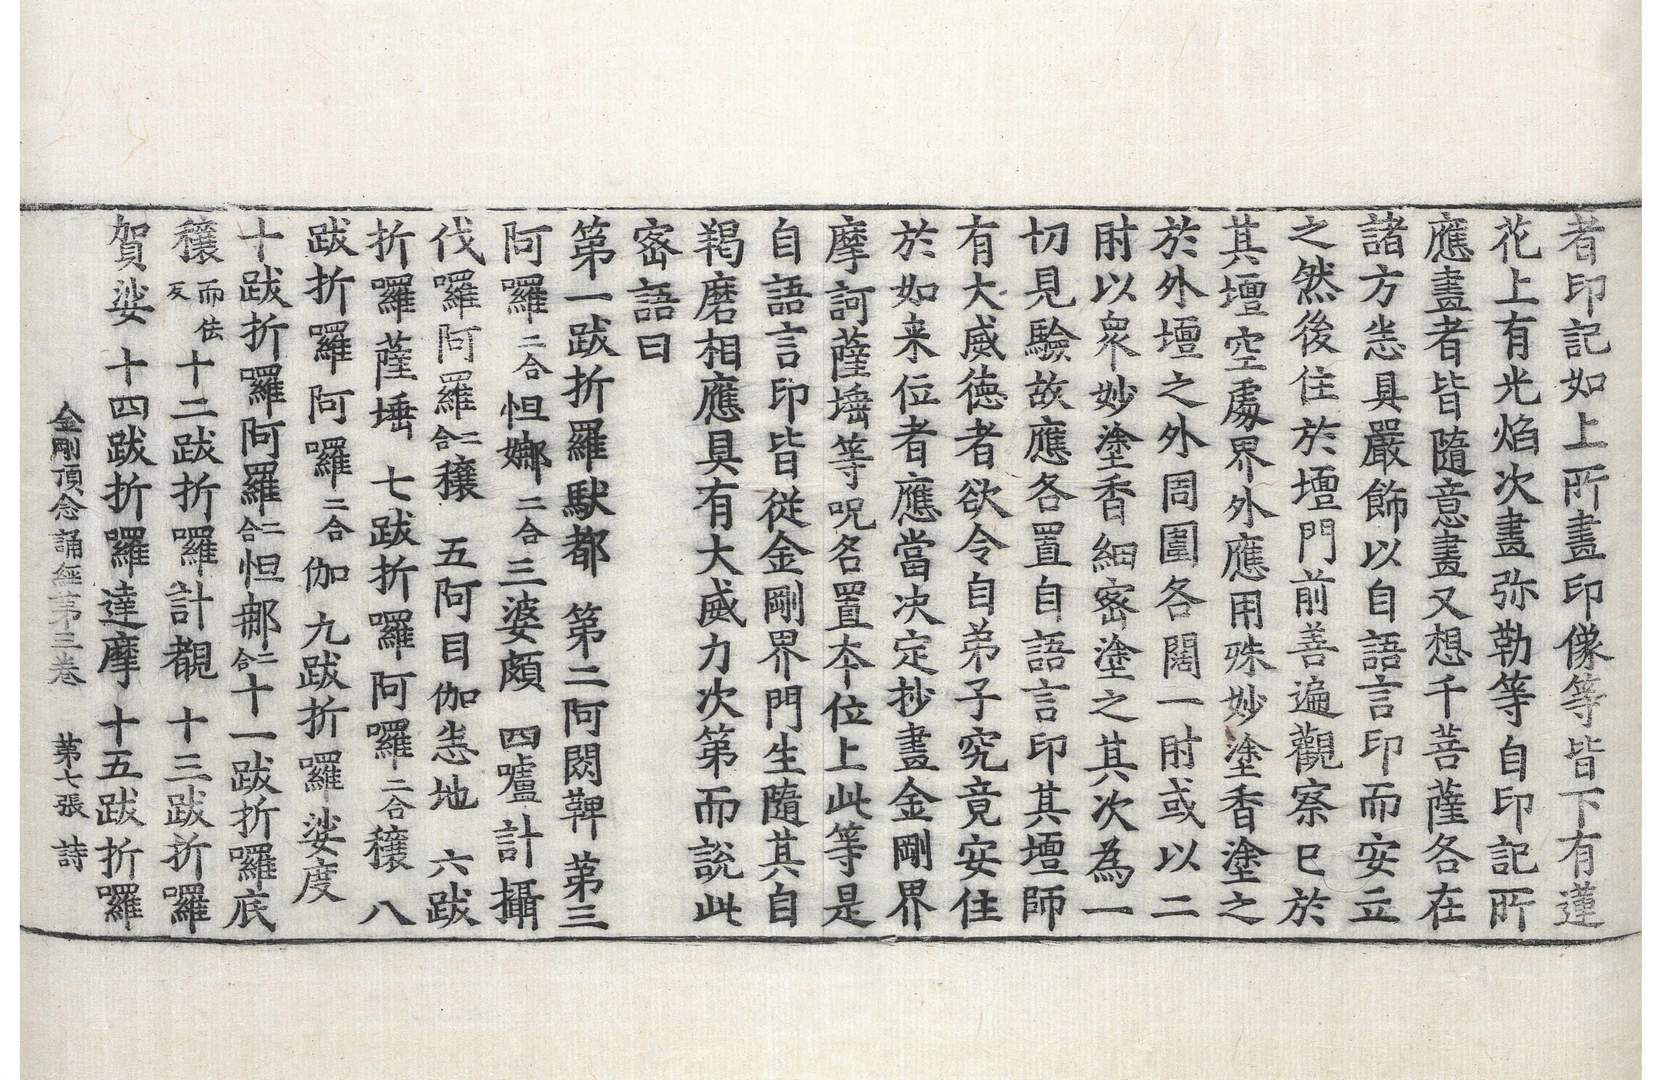 者印記如上所畫印像等皆下有蓮
花上有光焰次畫弥勒等自印記所
應畫者皆隨意畫又想千菩薩各在
諸方恙具嚴飾以自語言印而安立
之然後住於壇門前善遍觀察已於
其壇空處界外應用殊妙塗香塗之
於外壇之外周圍各闊一肘或以二
肘以衆妙塗香細密塗之其次為一
切見驗故應各置自語言印其壇師
有大威德者欲令自弟子究竟安住
於如来位者應當决定抄畫金剛界
摩訶薩埵等呪名置本位上此等是
自語言印皆從金剛界門生隨其自
羯磨相應具有大威力次第而說此
密語曰
第一跋折羅馱都 第二阿閦鞞 第三
阿囉二合怛娜二合 三婆頗 四嚧計攝
伐囉阿羅二合穰 五阿目伽恙地 六跋
折囉薩埵 七跋折囉阿囉二合穰 八
跋折囉阿囉二合伽 九跋折囉娑度
十跋折囉阿羅二合怛那二合十一跋折囉底
穰而佉反 十二跋折囉計覩 十三跋折囉
賀娑 十四跋折囉達摩 十五跋折囉
金剛頂念誦經第三卷 第七張 詩